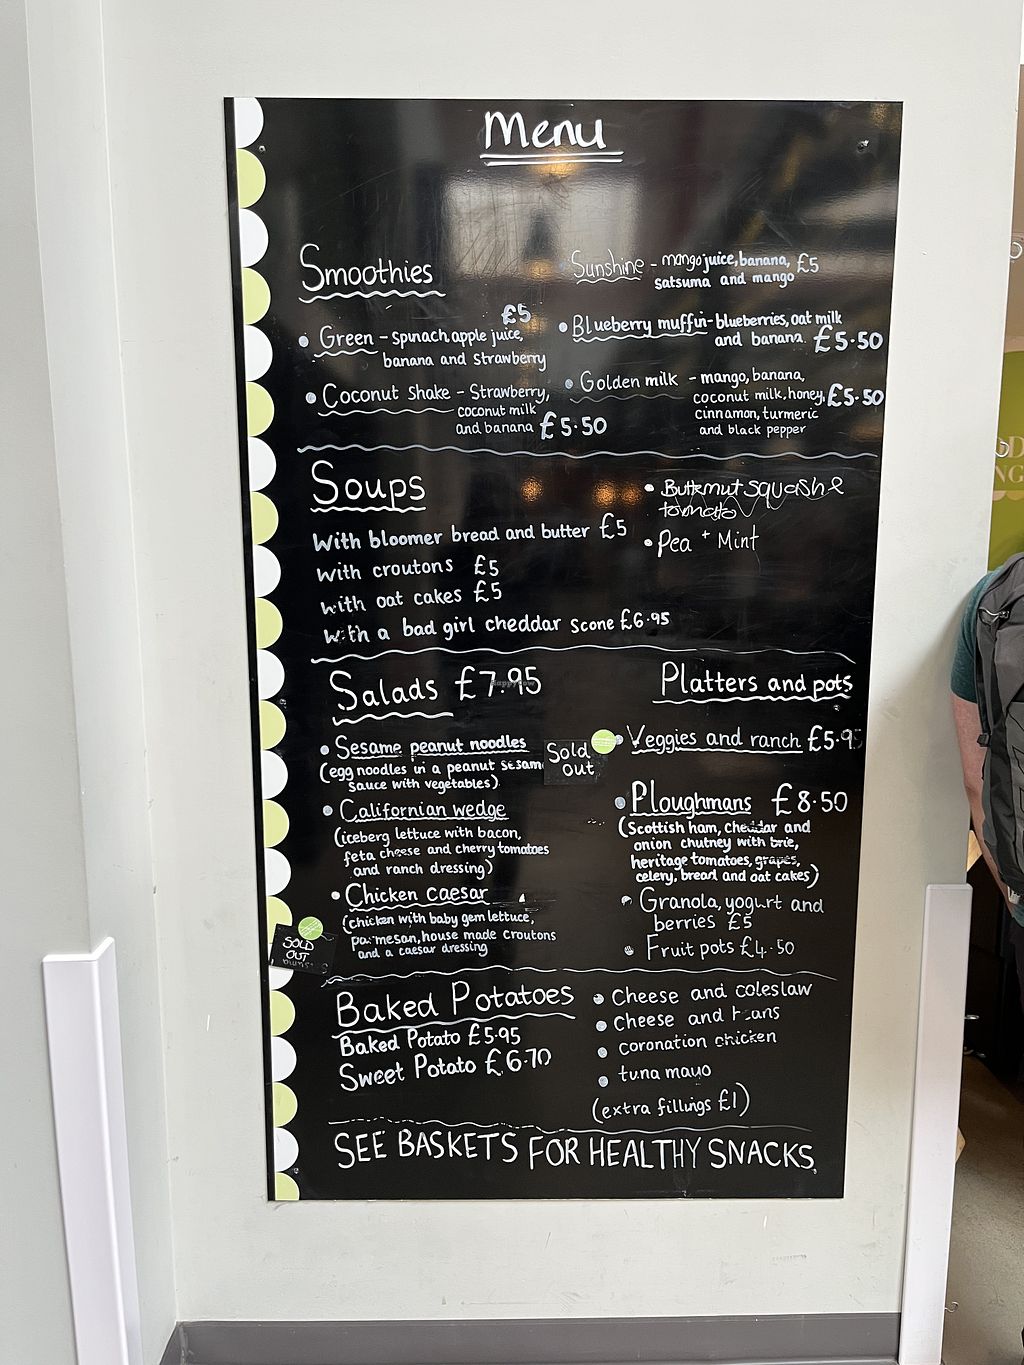 Menu
Smoothies
£5
• Green - spinach apple juice,
banana and strawberry
• Coconut Shake - Strawberry,
coconut milk
and banana £5.50
Sunshine - mango juice, banana, £5
satsuma and mango
• Blueberry muffin - blueberries, oat milk
and banana. £5.50
• Golden milk - mango, banana,
coconut milk, honey, £5.50
cinnamon, turmeric
and black pepper
Soups
With bloomer bread and butter £5
With croutons £5
with oat cakes £5
with a bad girl cheddar scone £6.95
• Butternut squash &
tomato
• Pea + Mint
Salads £7.95
• Sesame peanut noodles
(egg noodles in a peanut sesame
sauce with vegetables)
Sold
out
• Californian wedge
(iceberg lettuce with bacon,
feta cheese and cherry tomatoes
and ranch dressing)
• Chicken caesar
(chicken with baby gem lettuce,
parmesan, house made croutons
and a caesar dressing
SOLD
OUT
Platters and pots
• Veggies and ranch £5.95
• Ploughmans £8.50
(Scottish ham, cheddar and
onion chutney with brie,
heritage tomatoes, grapes,
celery, bread and oat cakes)
• Granola, yogurt and
berries £5
• Fruit pots £4.50
Baked Potatoes
Baked Potato £5.95
Sweet Potato £6.70
• Cheese and coleslaw
• Cheese and beans
• coronation chicken
• tuna mayo
(extra fillings £1)
SEE BASKETS FOR HEALTHY SNACKS